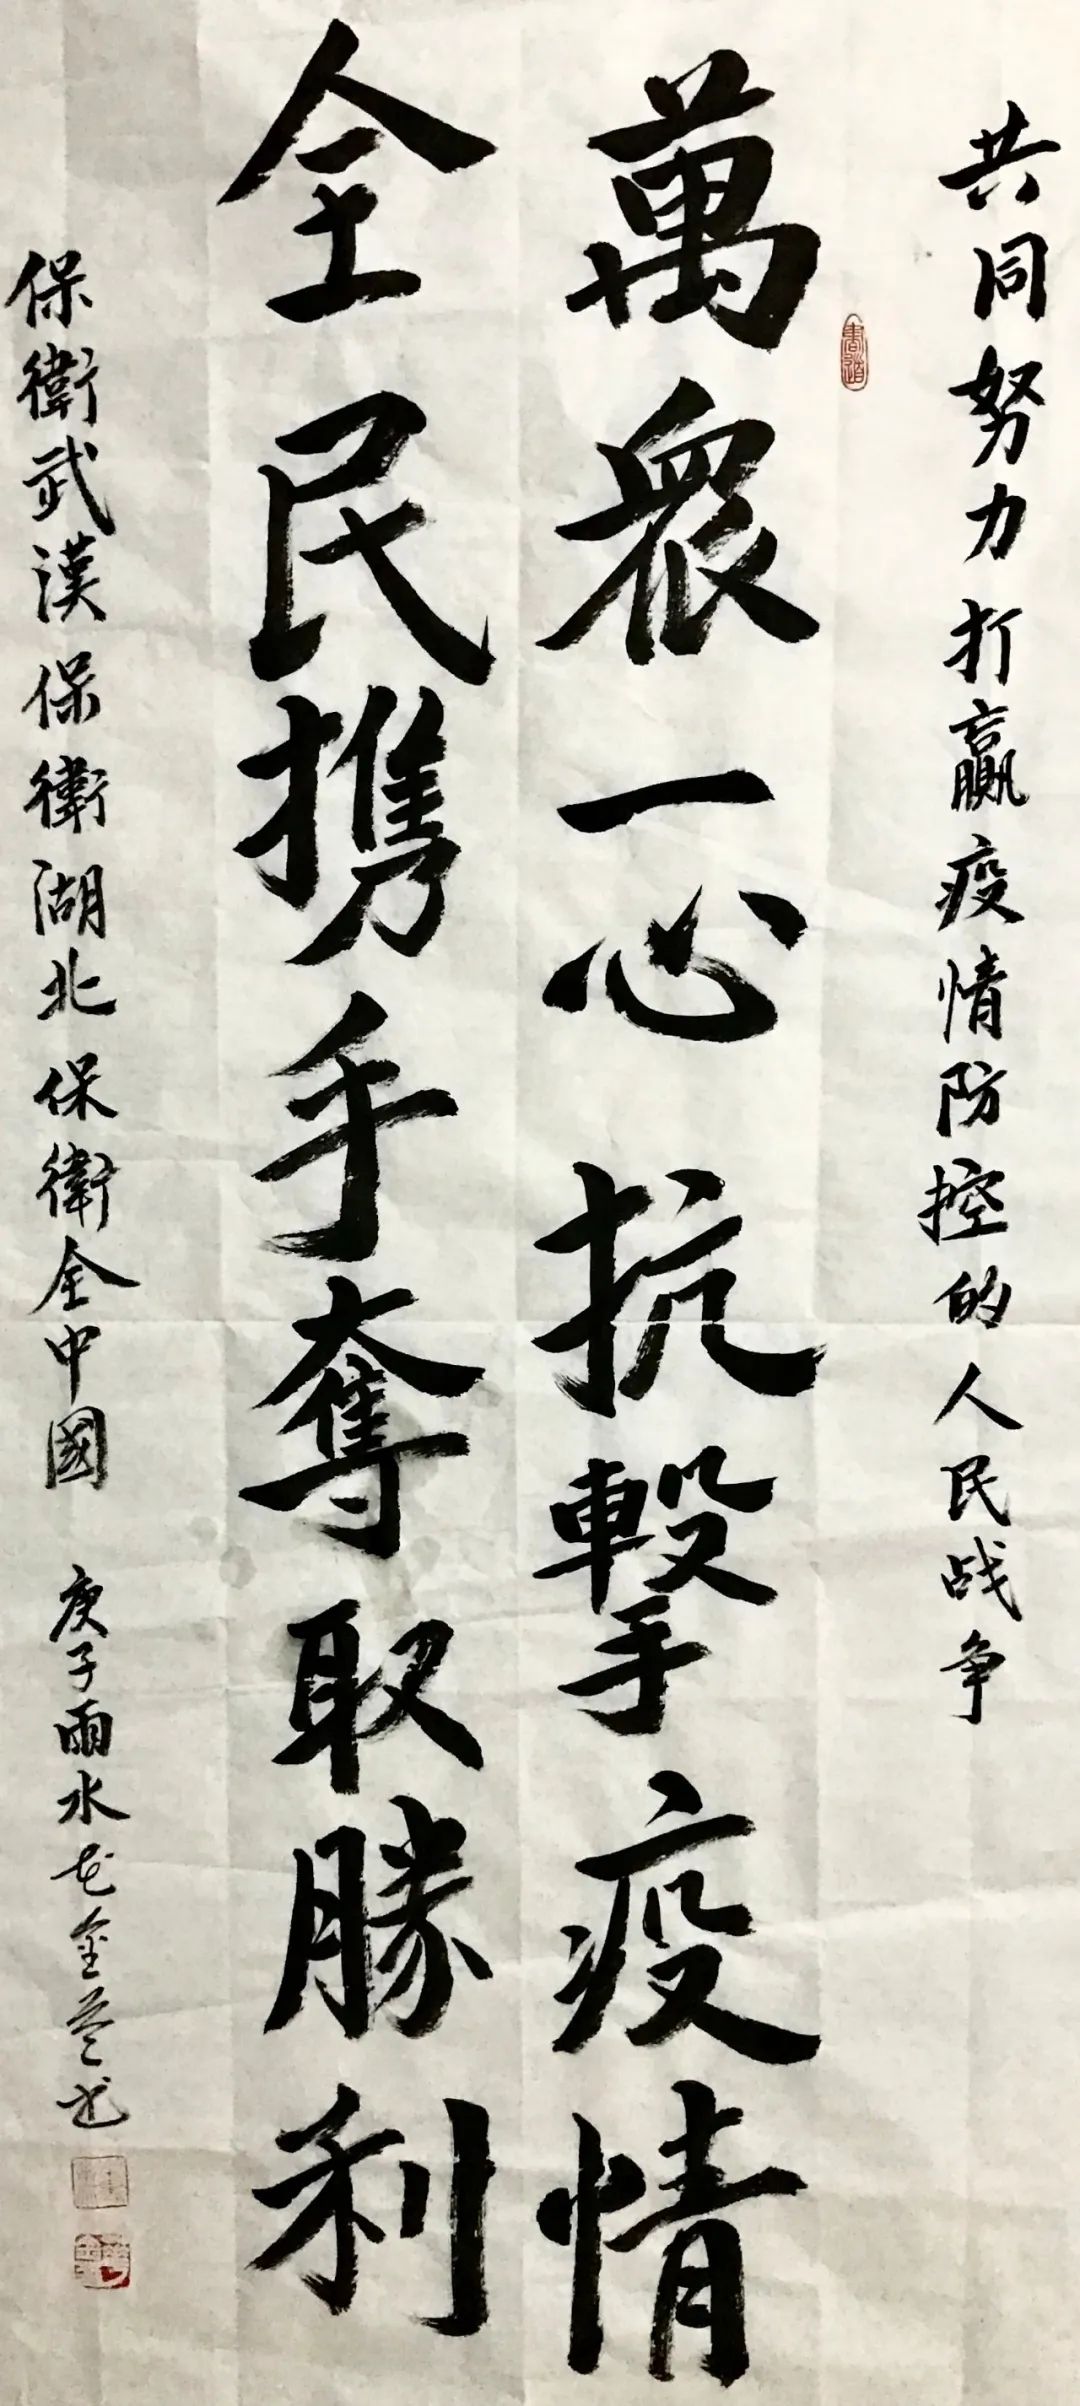 共同努力打贏疫情防控的人民战争
書道
萬衆一心抗擊疫情
全民携手奪取勝利
保衛武漢保衛湖北保衛全中國
庚子雨水 金 书